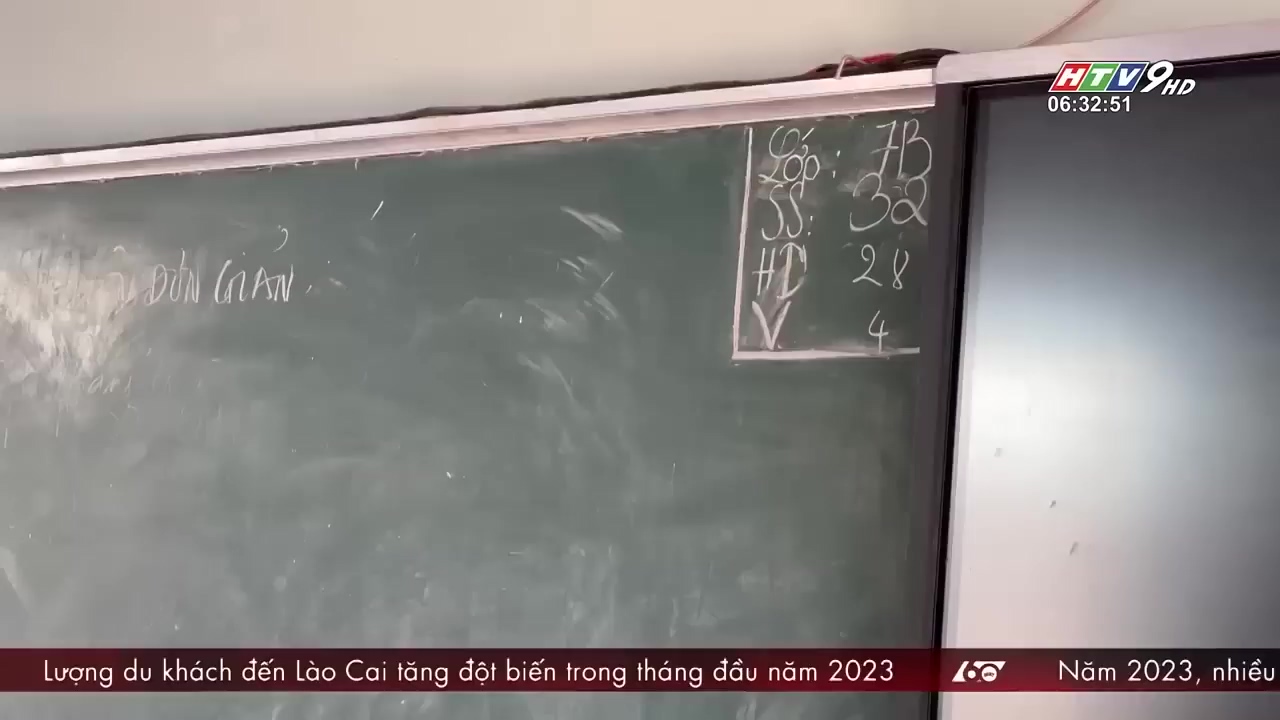 HTV9 HD
06:32:51
Lớp: 7B
SS: 32
HD 28
V 4
ĐƠN GIẢN
Lượng du khách đến Lào Cai tăng đột biến trong tháng đầu năm 2023
60
Năm 2023, nhiều